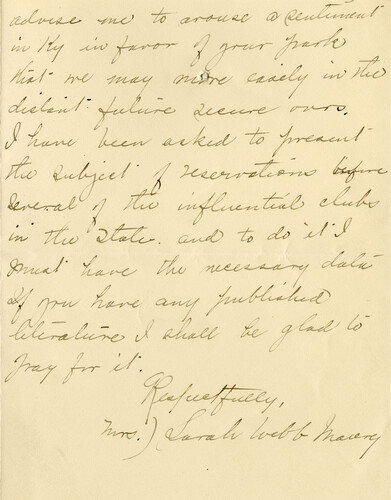 advise me to arouse a sentiment
in Ky in favor of your park
that we may more easily in the
distant future secure ours.
I have been asked to present
the subject of reservations before
several of the influential clubs
in the State. and to do it I
must have the necessary data
If you have any published
literature I shall be glad to
pay for it.
Respectfully,
Mrs.) Sarah Webb Maury